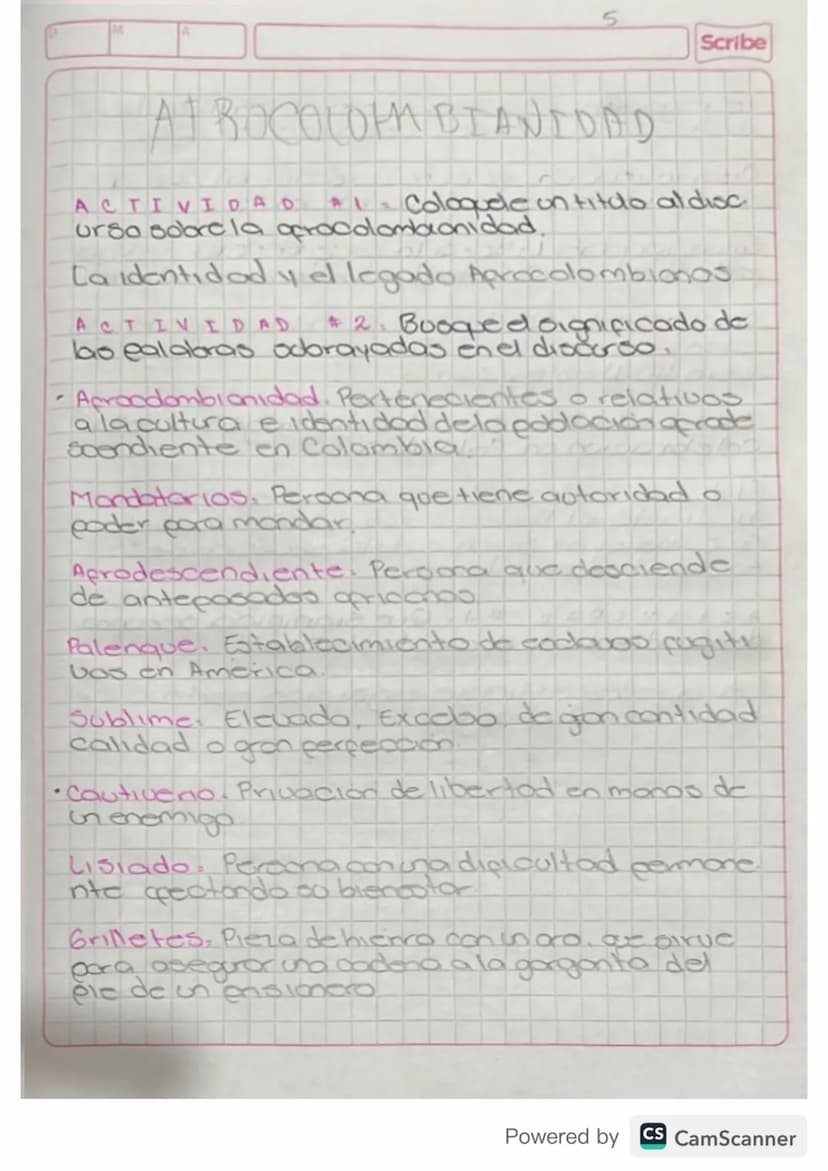 5
D M A
Scribe
AFROCOLOMBIANIDAD
ACTIVIDAD #1. Coloquele un titulo al disc
urso sobre la afrocolombianidad.
La identidad y el legado Afrocolombianos
ACTIVIDAD #2. Busque el significado de
las palabras subrayadas en el discurso.
· Afrocolombianidad. Pertenecientes o relativos
a la cultura e identidad de la población afrode
scendiente en Colombia.
Mandatarios. Persona que tiene autoridad o
poder para mandar.
Afrodescendiente. Persona que desciende
de antepasados africanos
Palenque. Establecimiento de esclavos fugiti
vos en América.
Sublime. Elevado, Excelso, de gran cantidad
calidad o gran perfección.
· Cautiverio. Privacion de libertad en manos de
un enemigo
Lisiado. Persona con una dificultad permane
nte afectando su bienestar
Grilletes. Pieza de hierro con un aro, que sirve
para asegurar una cadena a la garganta del
pie de un
Powered by CS CamScanner